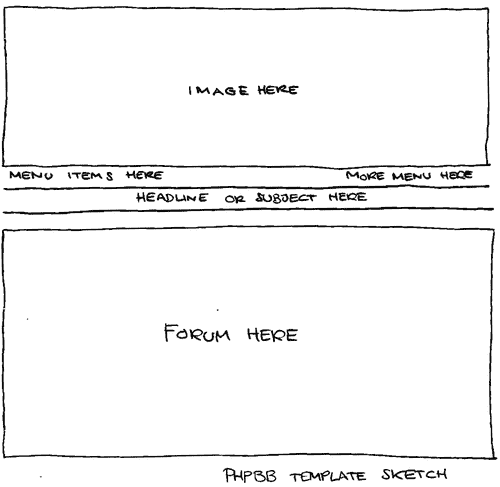 IMAGE HERE
MENU ITEMS HERE MORE MENU HERE
HEADLINE OR SUBJECT HERE
FORUM HERE
PHPBB TEMPLATE SKETCH